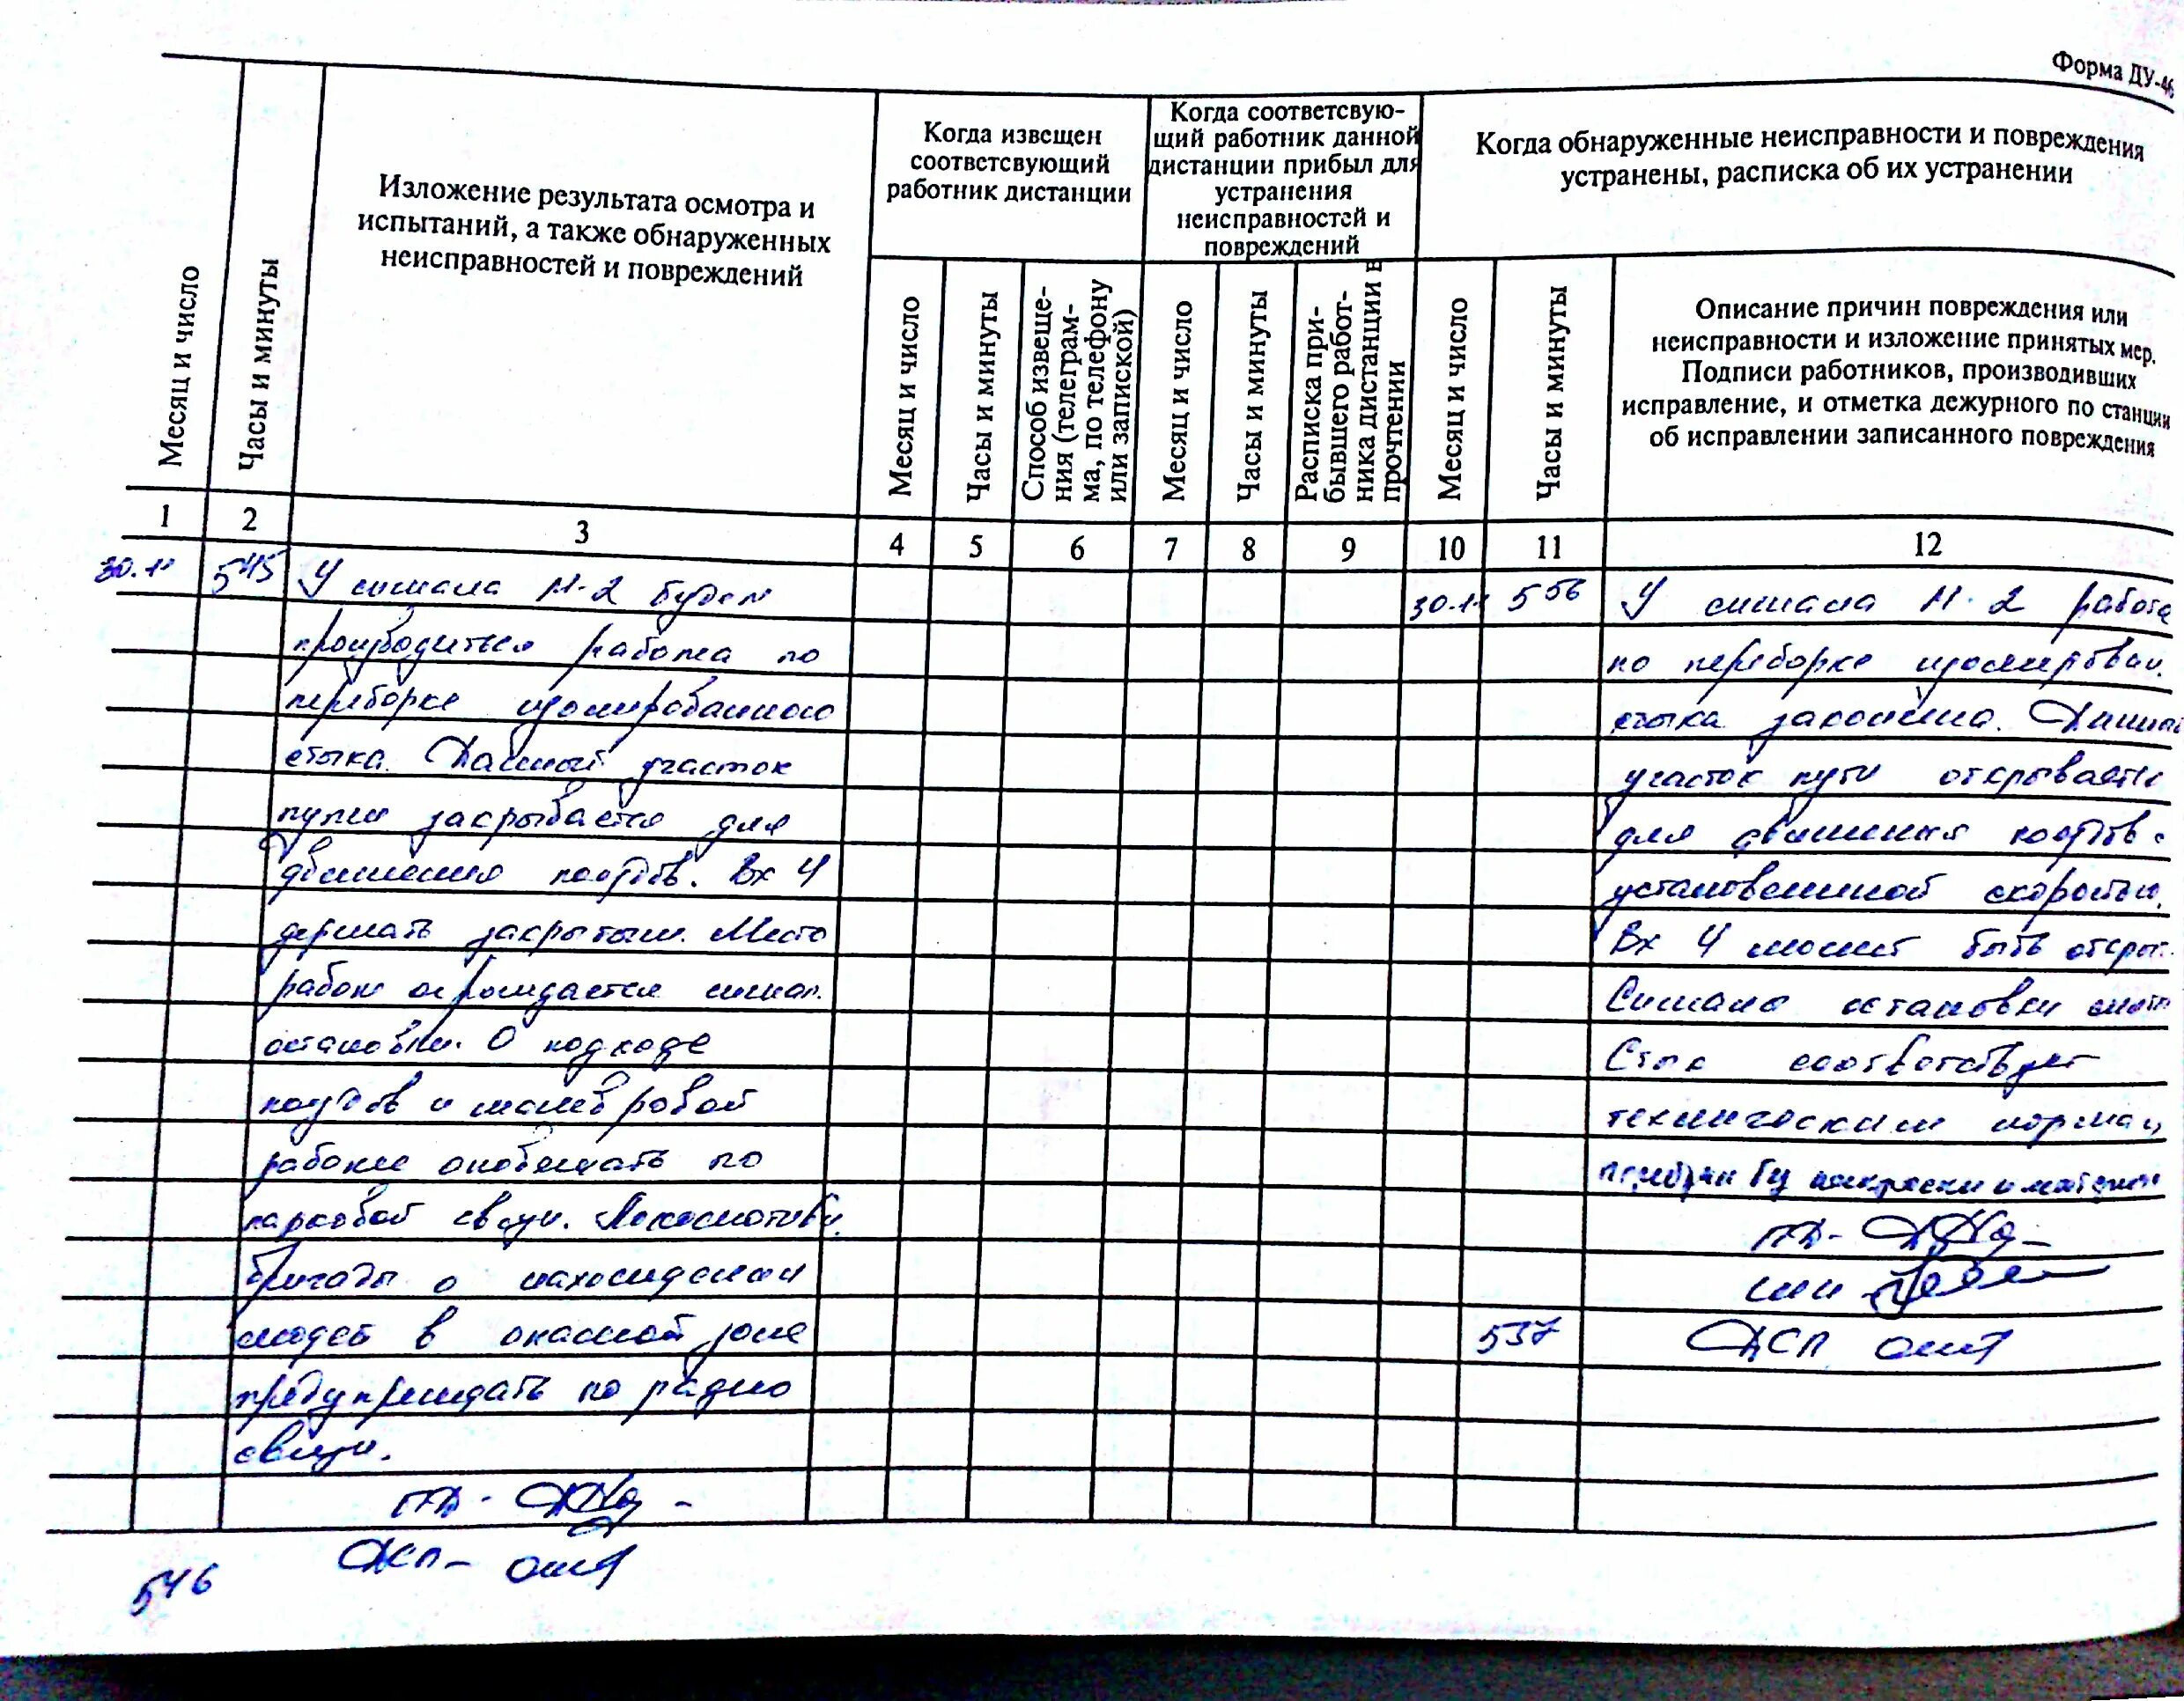 Форма ДУ-46
Месяц и число
Часы и минуты
Изложение результата осмотра и
испытаний, а также обнаруженных
неисправностей и повреждений
Когда извещен
соответсвующий
работник дистанции
Месяц и число
Часы и минуты
Способ извеще-
ния (телеграм-
ма, по телефону
или запиской)
Когда соответсвую-
щий работник данной
дистанции прибыл для
устранения
неисправностей и
повреждений
Месяц и число
Часы и минуты
Расписка при-
бывшего работ-
ника дистанции в
прочтении
Когда обнаруженные неисправности и повреждения
устранены, расписка об их устранении
Месяц и число
Часы и минуты
Описание причин повреждения или
неисправности и изложение принятых мер.
Подписи работников, производивших
исправление, и отметка дежурного по станции
об исправлении записанного повреждения
1 2 3 4 5 6 7 8 9 10 11 12
30.11 5 45 У сигнала Н-2 будет
производиться работа по
переборке изолированного
стыка. Данный участок
пути закрывается для
движения поездов. Вх Ч
держать закрытым. Место
работ ограждается сигнал.
остановки. О подходе
поездов и маневровой
работе оповещать по
парковой связи. Локомотивн.
бригады о нахождении
людей в опасной зоне
предупреждать по радио
связи.
ПД-
ДСП-
5 46
30.11 5 56 У сигнала Н-2 работа
по переборке изолирован.
стыка закончена. Данный
участок пути открывается
для движения поездов с
установленной скоростью.
Вх Ч может быть открыт.
Сигналы остановки сняты
Стык соответствует
техническим нормам,
ПД-
ШН
5 57 ДСП